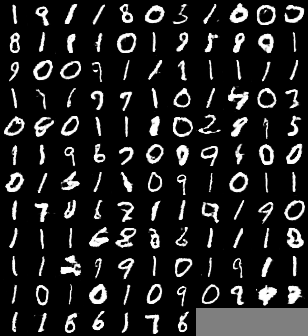 1 9 1 1 8 0 3 1 0 0 0
8 1 1 0 1 9 5 8 1
9 0 0 9 1 1 1 1 1 1 1
1 7 7 1 0 1 0 3
0 0 1 1 0 2 8 9 5
1 1 9 6 7 0 0 9 0 0
0 1 1 0 9 1 0 1 1
1 7 6 2 1 1 9 1 9 0
1 1 1 6 8 8 6 1 1 1 8
1 1 9 9 1 0 1 9 1 1
1 0 1 0 1 0 9 0 9 3
1 1 8 6 1 7 8